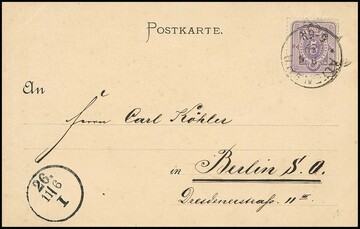 POSTKARTE.
5
An
Herrn Carl Köhler
in Berlin S.O.
Dresdenerstraße 11
26.
11 6
I